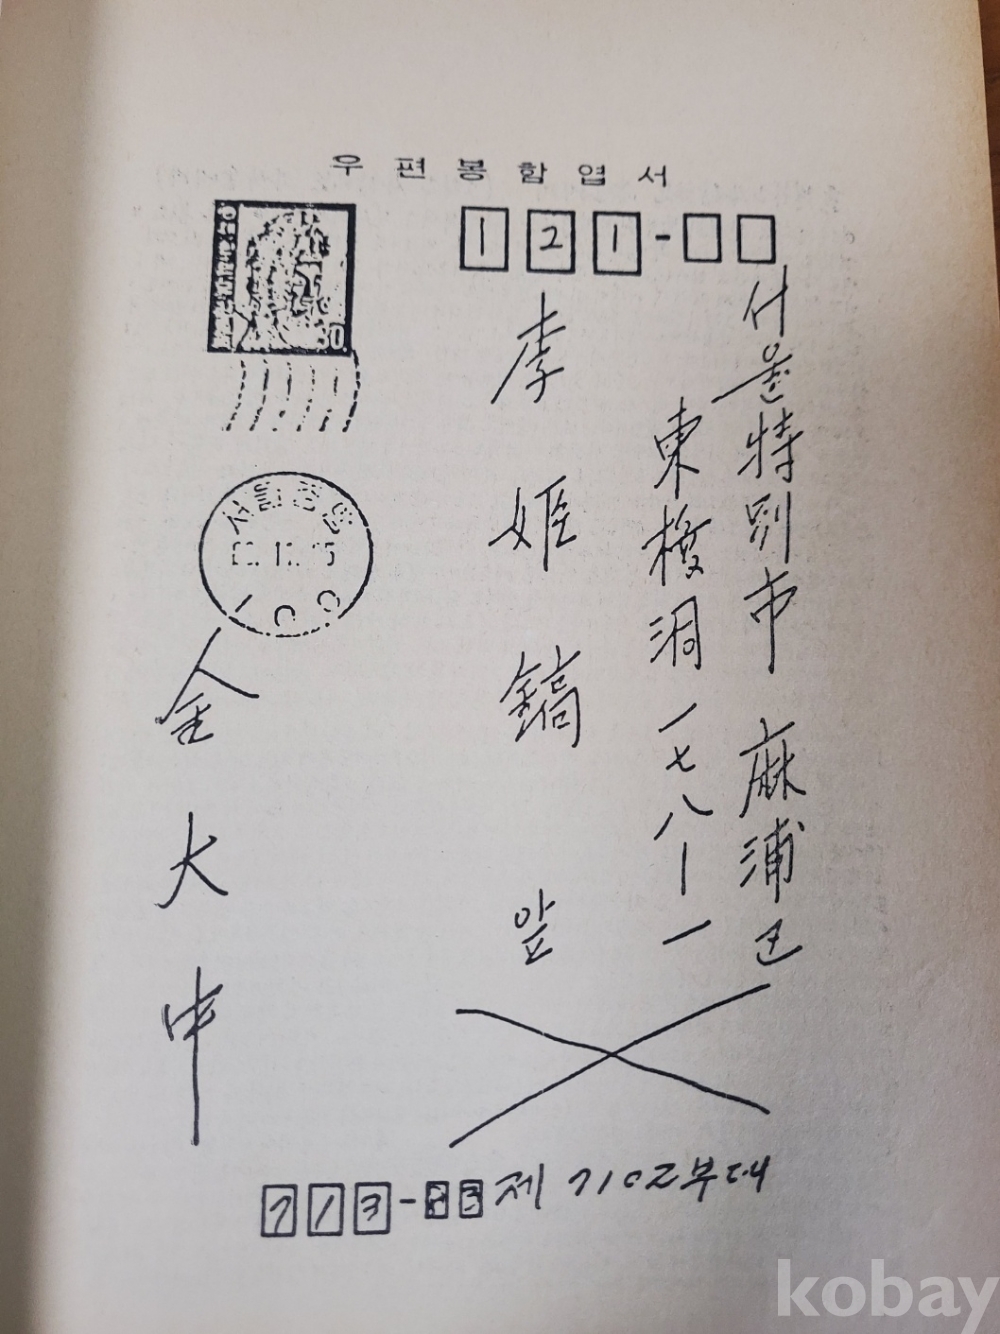 우편봉함엽서
121-
서울特別市 麻浦區
東橋洞 一七八-一
李姬鎬 앞
서울중앙
100
金大中
713-
제 7102부대
kobay